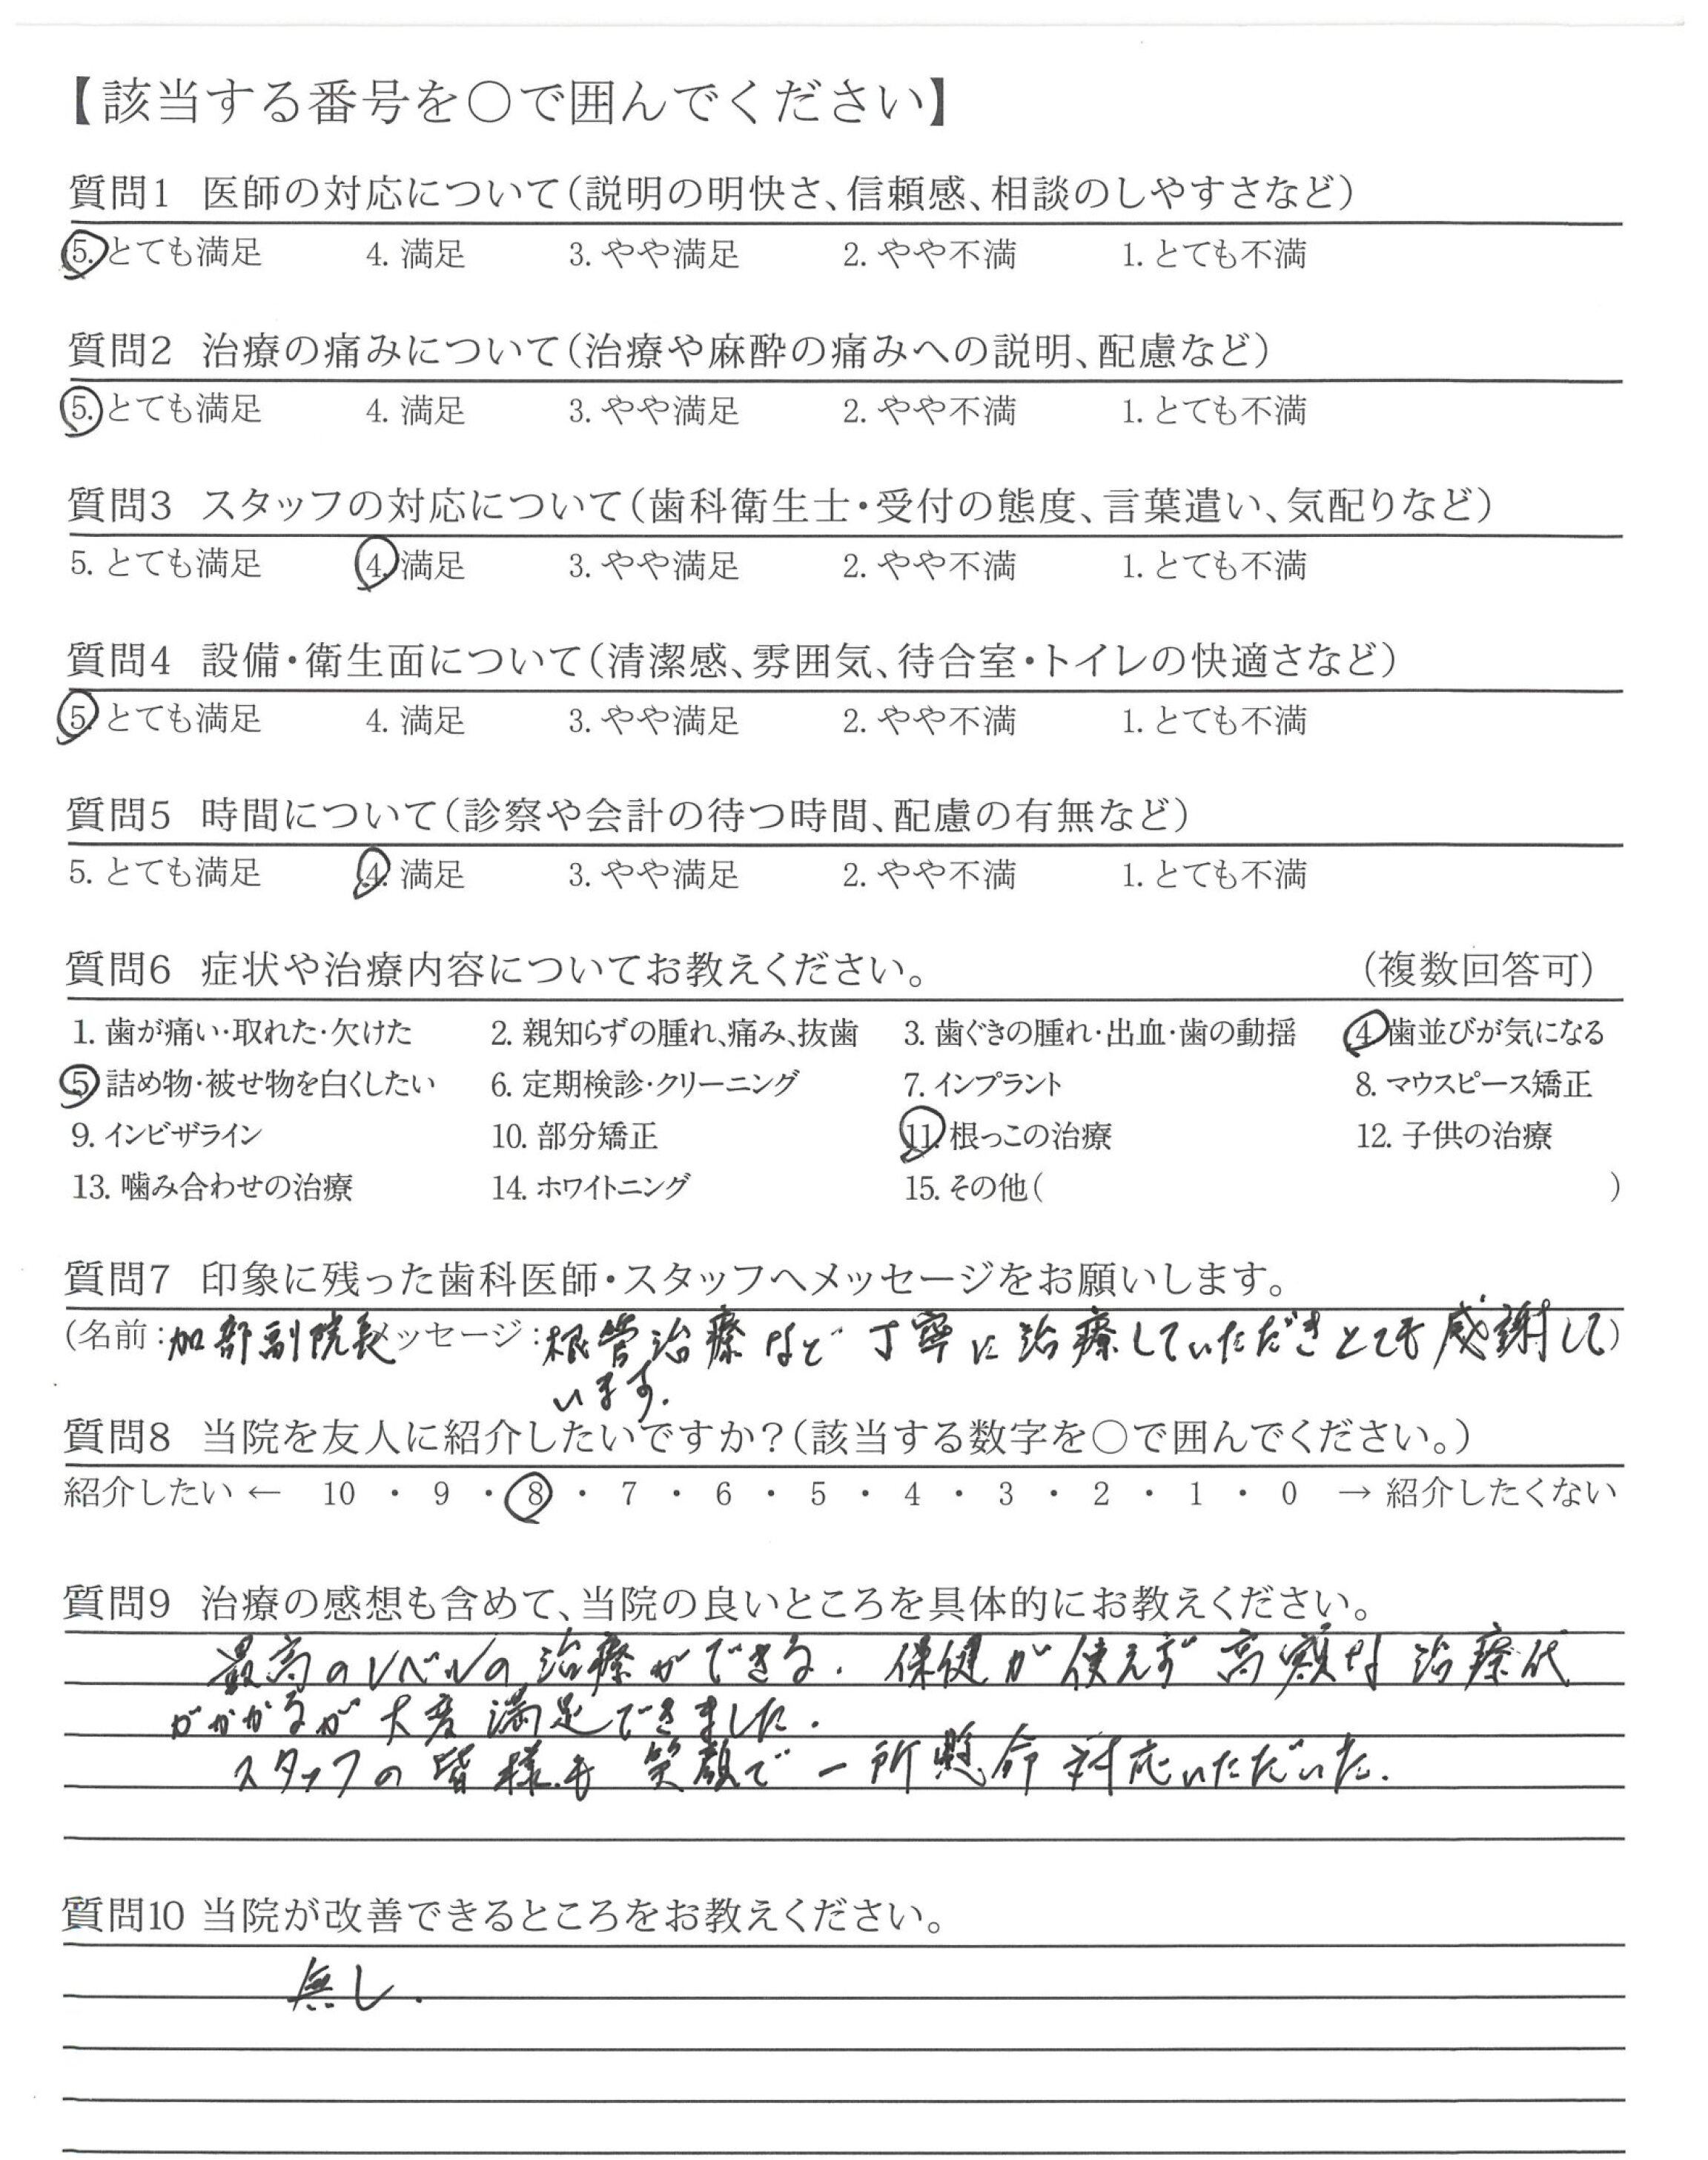 【該当する番号を○で囲んでください】
質問1 医師の対応について(説明の明快さ、信頼感、相談のしやすさなど)
5. とても満足 4. 満足 3. やや満足 2. やや不満 1. とても不満
質問2 治療の痛みについて(治療や麻酔の痛みへの説明、配慮など)
5. とても満足 4. 満足 3. やや満足 2. やや不満 1. とても不満
質問3 スタッフの対応について(歯科衛生士・受付の態度、言葉遣い、気配りなど)
5. とても満足 4. 満足 3. やや満足 2. やや不満 1. とても不満
質問4 設備・衛生面について(清潔感、雰囲気、待合室・トイレの快適さなど)
5. とても満足 4. 満足 3. やや満足 2. やや不満 1. とても不満
質問5 時間について(診察や会計の待つ時間、配慮の有無など)
5. とても満足 4. 満足 3. やや満足 2. やや不満 1. とても不満
質問6 症状や治療内容についてお教えください。 (複数回答可)
1. 歯が痛い・取れた・欠けた 2. 親知らずの腫れ、痛み、抜歯 3. 歯ぐきの腫れ・出血・歯の動揺 4. 歯並びが気になる
5. 詰め物・被せ物を白くしたい 6. 定期検診・クリーニング 7. インプラント 8. マウスピース矯正
9. インビザライン 10. 部分矯正 11. 根っこの治療 12. 子供の治療
13. 噛み合わせの治療 14. ホワイトニング 15. その他( )
質問7 印象に残った歯科医師・スタッフへメッセージをお願いします。
(名前:加部副院長メッセージ:根管治療など丁寧に治療していただきとても感謝して)
います.
質問8 当院を友人に紹介したいですか?(該当する数字を○で囲んでください。)
紹介したい ← 10 ・ 9 ・ 8 ・ 7 ・ 6 ・ 5 ・ 4 ・ 3 ・ 2 ・ 1 ・ 0 → 紹介したくない
質問9 治療の感想も含めて、当院の良いところを具体的にお教えください。
最高のレベルの治療ができる. 保健が使えず高額な治療代
がかかるが大変満足できました.
スタッフの皆様も笑顔で一所懸命対応いただいた.
質問10 当院が改善できるところをお教えください。
無し.